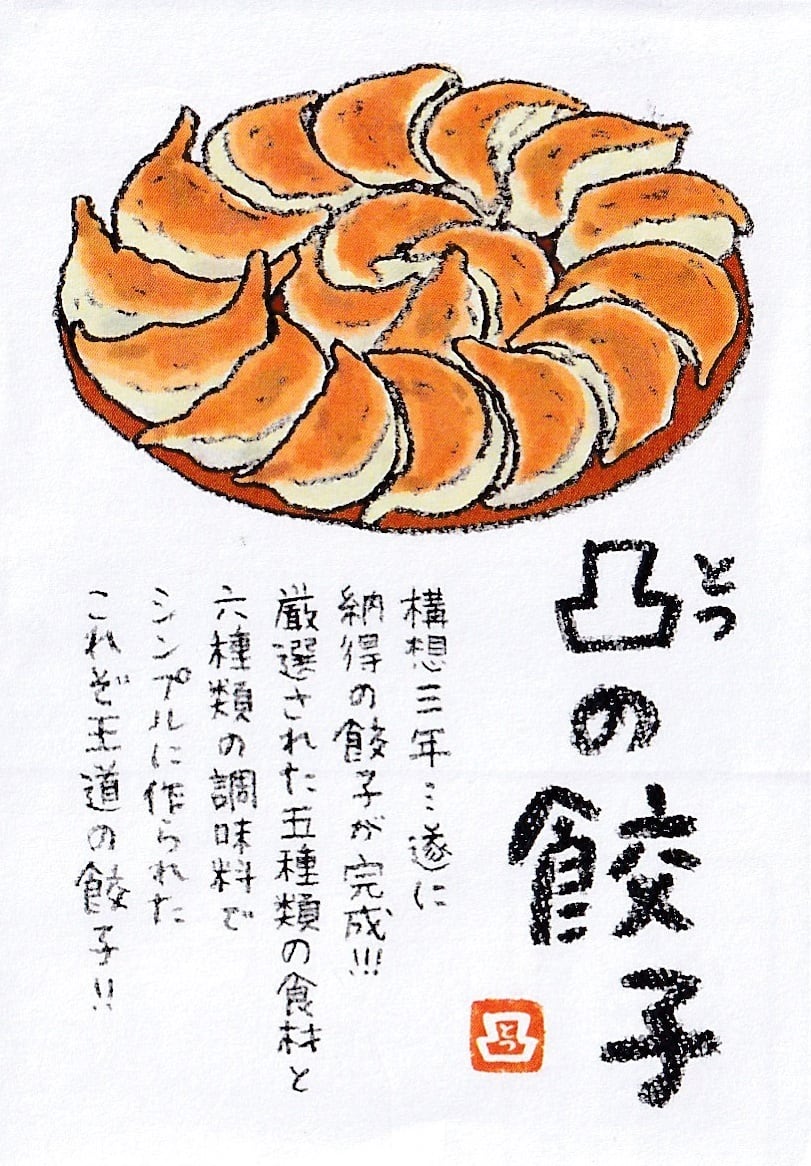 凸の餃子
とつ
構想三年…遂に
納得の餃子が完成!!!
厳選された五種類の食材と
六種類の調味料で
シンプルに作られた
これぞ王道の餃子!!
凸
とつ